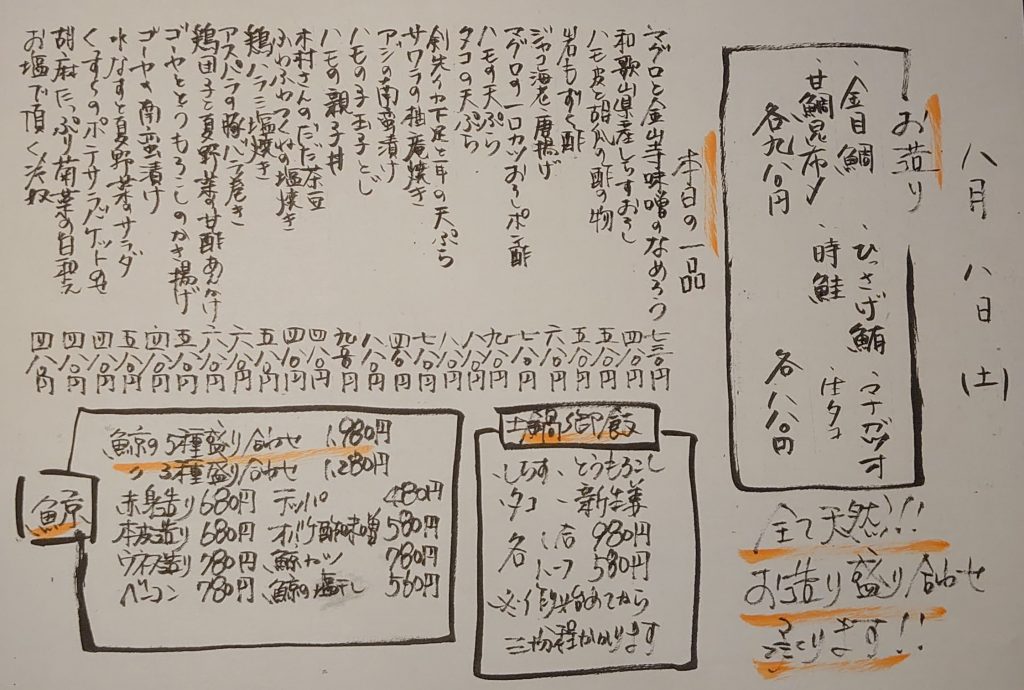 八月 八日 (土)
お造り
・金目鯛 ・ひっさげ鮪 ・マナガツオ
・甘鯛昆布〆 ・時鮭 ・生タコ
各九八〇円 各八八〇円
全て天然!!
お造り盛り合わせ
造ります!!
本日の一品
マグロと金山寺味噌のなめろう 七三〇円
和歌山県産しらすおろし 四八〇円
ハモ皮と胡瓜の酢の物 五八〇円
岩もずく酢 五八〇円
ジャコ海老唐揚げ 六八〇円
マグロの一口カツおろしポン酢 七八〇円
ハモの天ぷら 九八〇円
タコの天ぷら 八八〇円
剣先イカ下足と耳の天ぷら 八八〇円
サワラの柚庵焼き 七八〇円
アジの南蛮漬け 四八〇円
ハモの子玉子とじ 八八〇円
ハモの親子丼 九五〇円
木村さんのだだ茶豆 四八〇円
ふわふわつくねの塩焼き 四八〇円
鶏ハラミ塩焼き 五八〇円
アスパラの豚バラ巻き 六八〇円
鶏団子と夏野菜の甘酢あんかけ 六八〇円
ゴーヤととうもろこしのかき揚げ 五八〇円
ゴーヤの南蛮漬け 四八〇円
水なすと夏野菜のサラダ 五八〇円
ポテサラバケット添 四八〇円
胡麻たっぷり南京の白和え 四八〇円
お塩で頂く冷奴 四八〇円
土鍋御飯
・しらす ・とうもろこし
・タコ ・新生姜
各 一合 980円
ハーフ 580円
三十分程かかります
鯨
鯨の5種盛り合わせ 1,980円
〃 3種盛り合わせ 1,280円
赤身造り 680円 テッパ 480円
本皮造り 680円 オバケ酢味噌 580円
ウネス造り 780円 鯨カツ 780円
ベーコン 780円 鯨の塩干し 560円